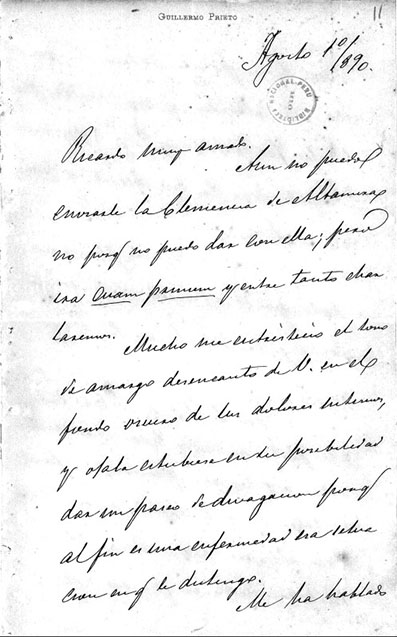 GUILLERMO PRIETO
11
Agosto 1o/890.
BIBLIOTECA NACIONAL-PERU
Ricardo muy amado.
Aun no puedo
enviarte la Clemencia de Altamirano
no porq no puedo dar con ella; pero
ira Quam primum y entre tanto char
laremos.
Mucho me entristecio el tono
de amargo desencanto de V. en el
fondo oscuro de los dolores internos,
y ojala estubiese en su posibilidad
dar un paseo de divagacion porq
al fin es una enfermedad esa
cion en q le
Me ha hablado